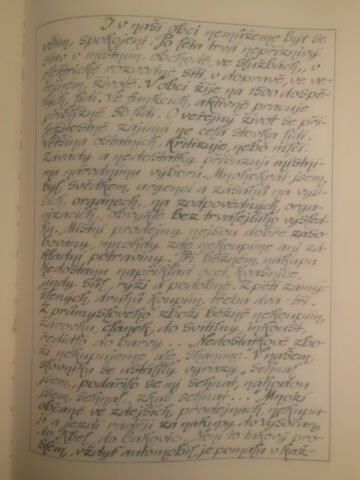 I v naší obci nemůžeme být se
vším, spokojeni. Po léta trvá nepříznivý
stav v místním, obchodě, ve službách, v
elektrické rozvodné síti v dopravě, ve ve-
řejném, životě. V obci žije na 1500 dospě-
lých, lidí. Ve funkcích, aktivně pracuje
přibližně 50 lidí. O veřejný život se pří-
ležitostně zajímá ne celá stovka lidí.
Většina ostatních, kritizuje, nebo
závady a nedostatky přisuzují místní-
mu národnímu výboru. Mnohokrát jsem,
byl svědkem, urgencí a zásahů na vyš-
ších, orgánech, na zodpovědných, orga-
nizacích, obvykle bez trvalejšího výsled-
ku. Místní prodejny nejsou dobře záso-
bovány, mnohdy zde nekoupíme ani zá-
kladní potraviny. Při běžném, nákupu
nedostanu například ocet, kvasnice,
jindy sůl, rýži a podobně. Z pěti zamý-
šlených, druhů koupím, třeba dva - tři.
Z průmyslového zboží běžně nekoupím,
žárovku, článek do svítilny, inkoust,
ředidlo do barvy . . . Nedostatkové zbo-
ží nekupujeme, ale sháníme. V našem,
slovníku se ustálily výrazy „sehnal
jsem, podařilo se mi sehnat, náhodou
jsem, sehnal, zkus sehnat . . ." Mnozí
občané ve zdejších, prodejnách, nekupu-
jí a jezdí raději za nákupy do Vysočan,
do Kbel, do Čakovic. Není to takový pro-
blém, vždyť automobil je pomalu v kaž-